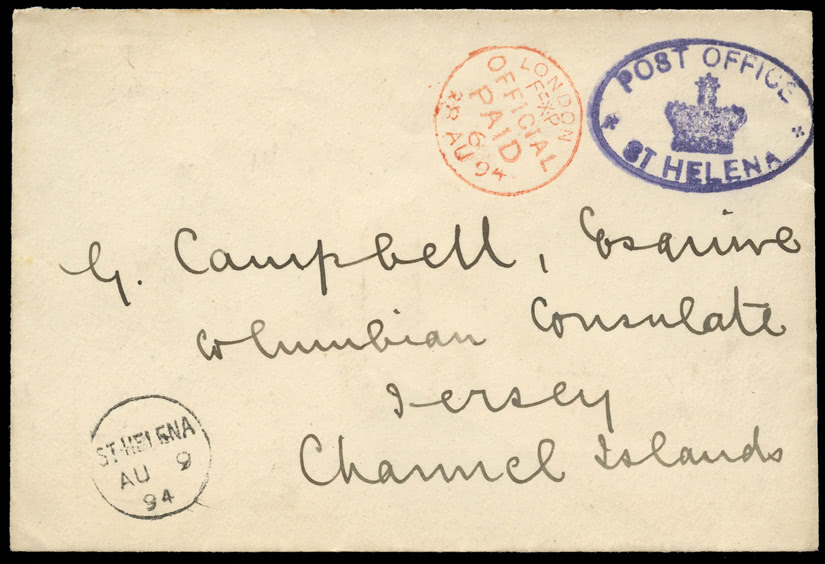 LONDON
F.EXP
OFFICIAL
PAID
6
28 AU 94
POST OFFICE
ST HELENA
G. Campbell, Esquire
Columbian Consulate
Jersey
Channel Islands
ST. HELENA
AU 9
94